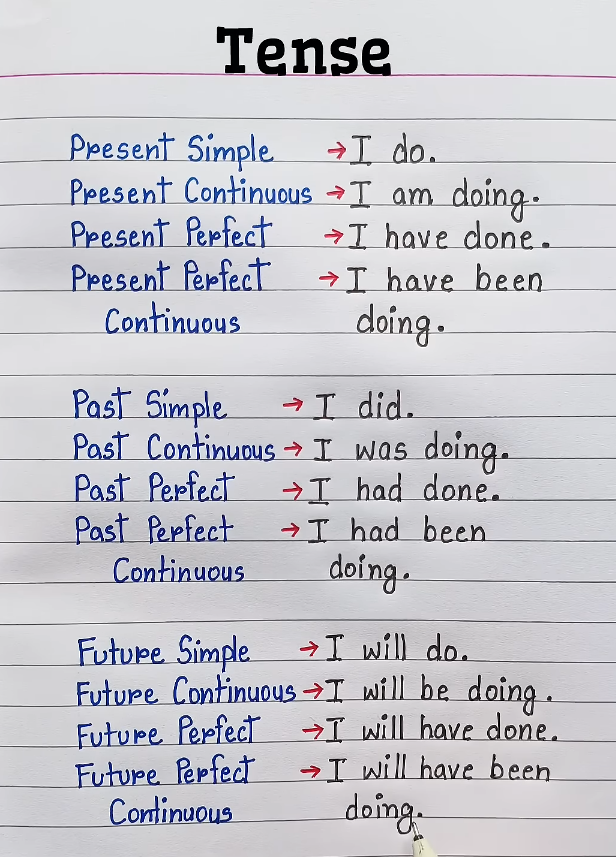 Tense
Present Simple → I do.
Present Continuous → I am doing.
Present Perfect → I have done.
Present Perfect → I have been
Continuous doing.
Past Simple → I did.
Past Continuous → I was doing.
Past Perfect → I had done.
Past Perfect → I had been
Continuous doing.
Future Simple → I will do.
Future Continuous → I will be doing.
Future Perfect → I will have done.
Future Perfect → I will have been
Continuous doing.